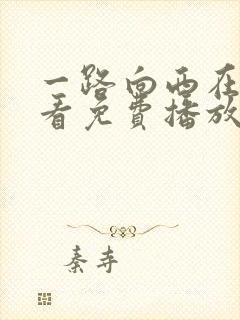 一路向西在
看免费播放
秦寺